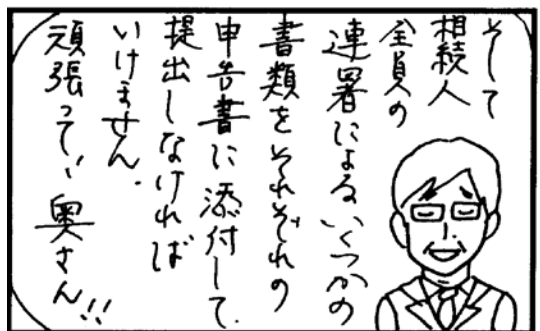 そして
相続人
全員の
連署によるいくつかの
書類をそれぞれの
申告書に添付して
提出しなければ
いけません.
頑張って、奥さん!!